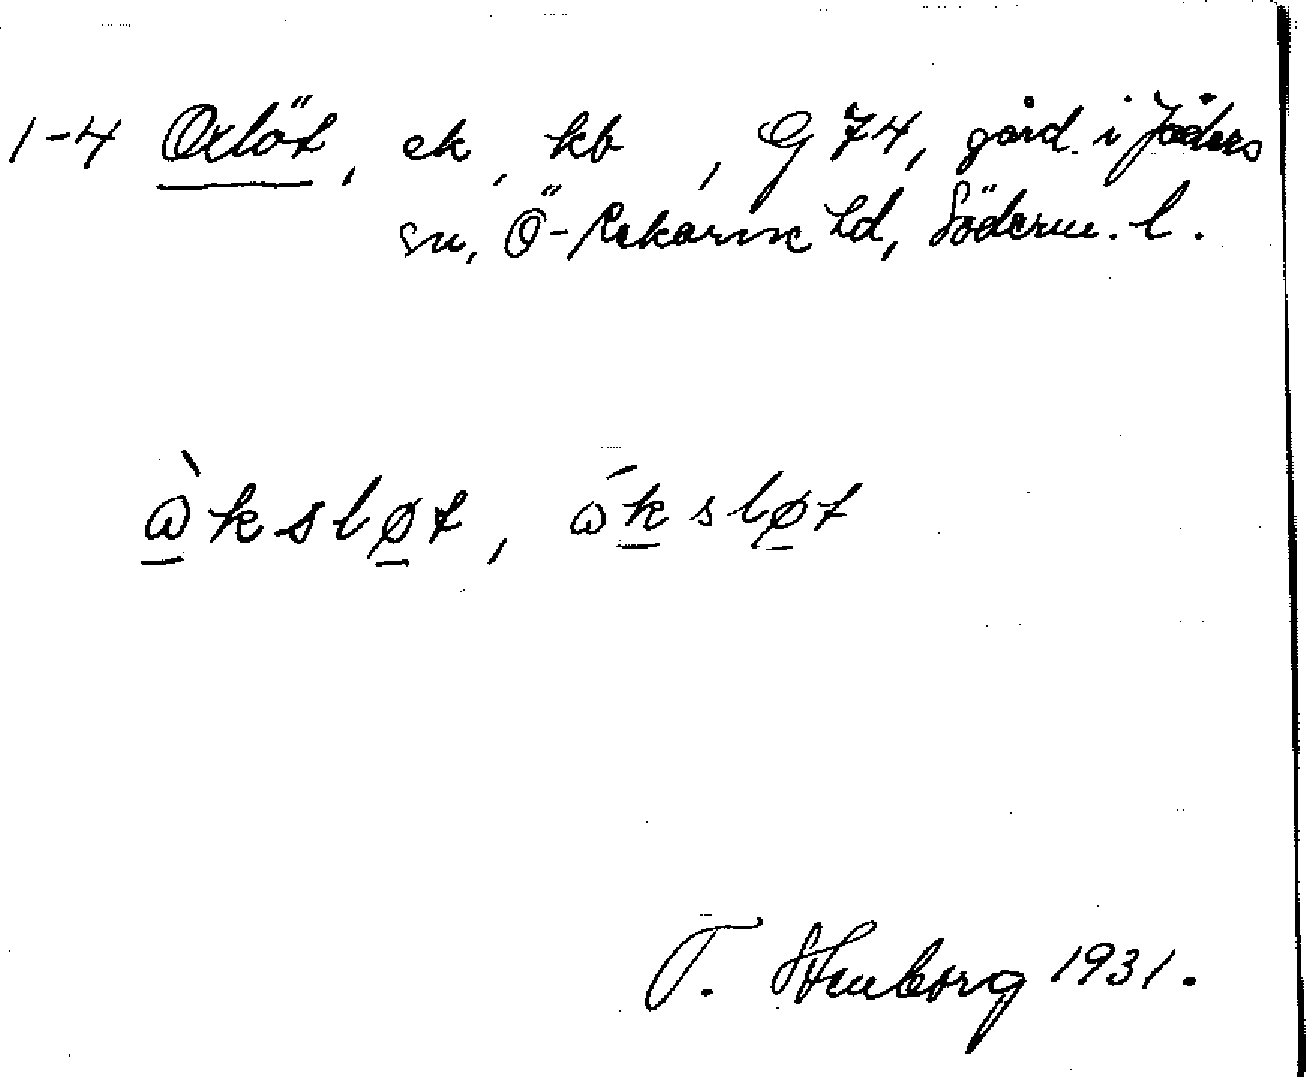 1-4 Oxlöt, ek, kb, G 74, gård i Jäders
sn, Ö-Rekarne hd, Söderm. l.
ὼkslø̲t, ώk̲slø̲t
T. Stenborg 1931.